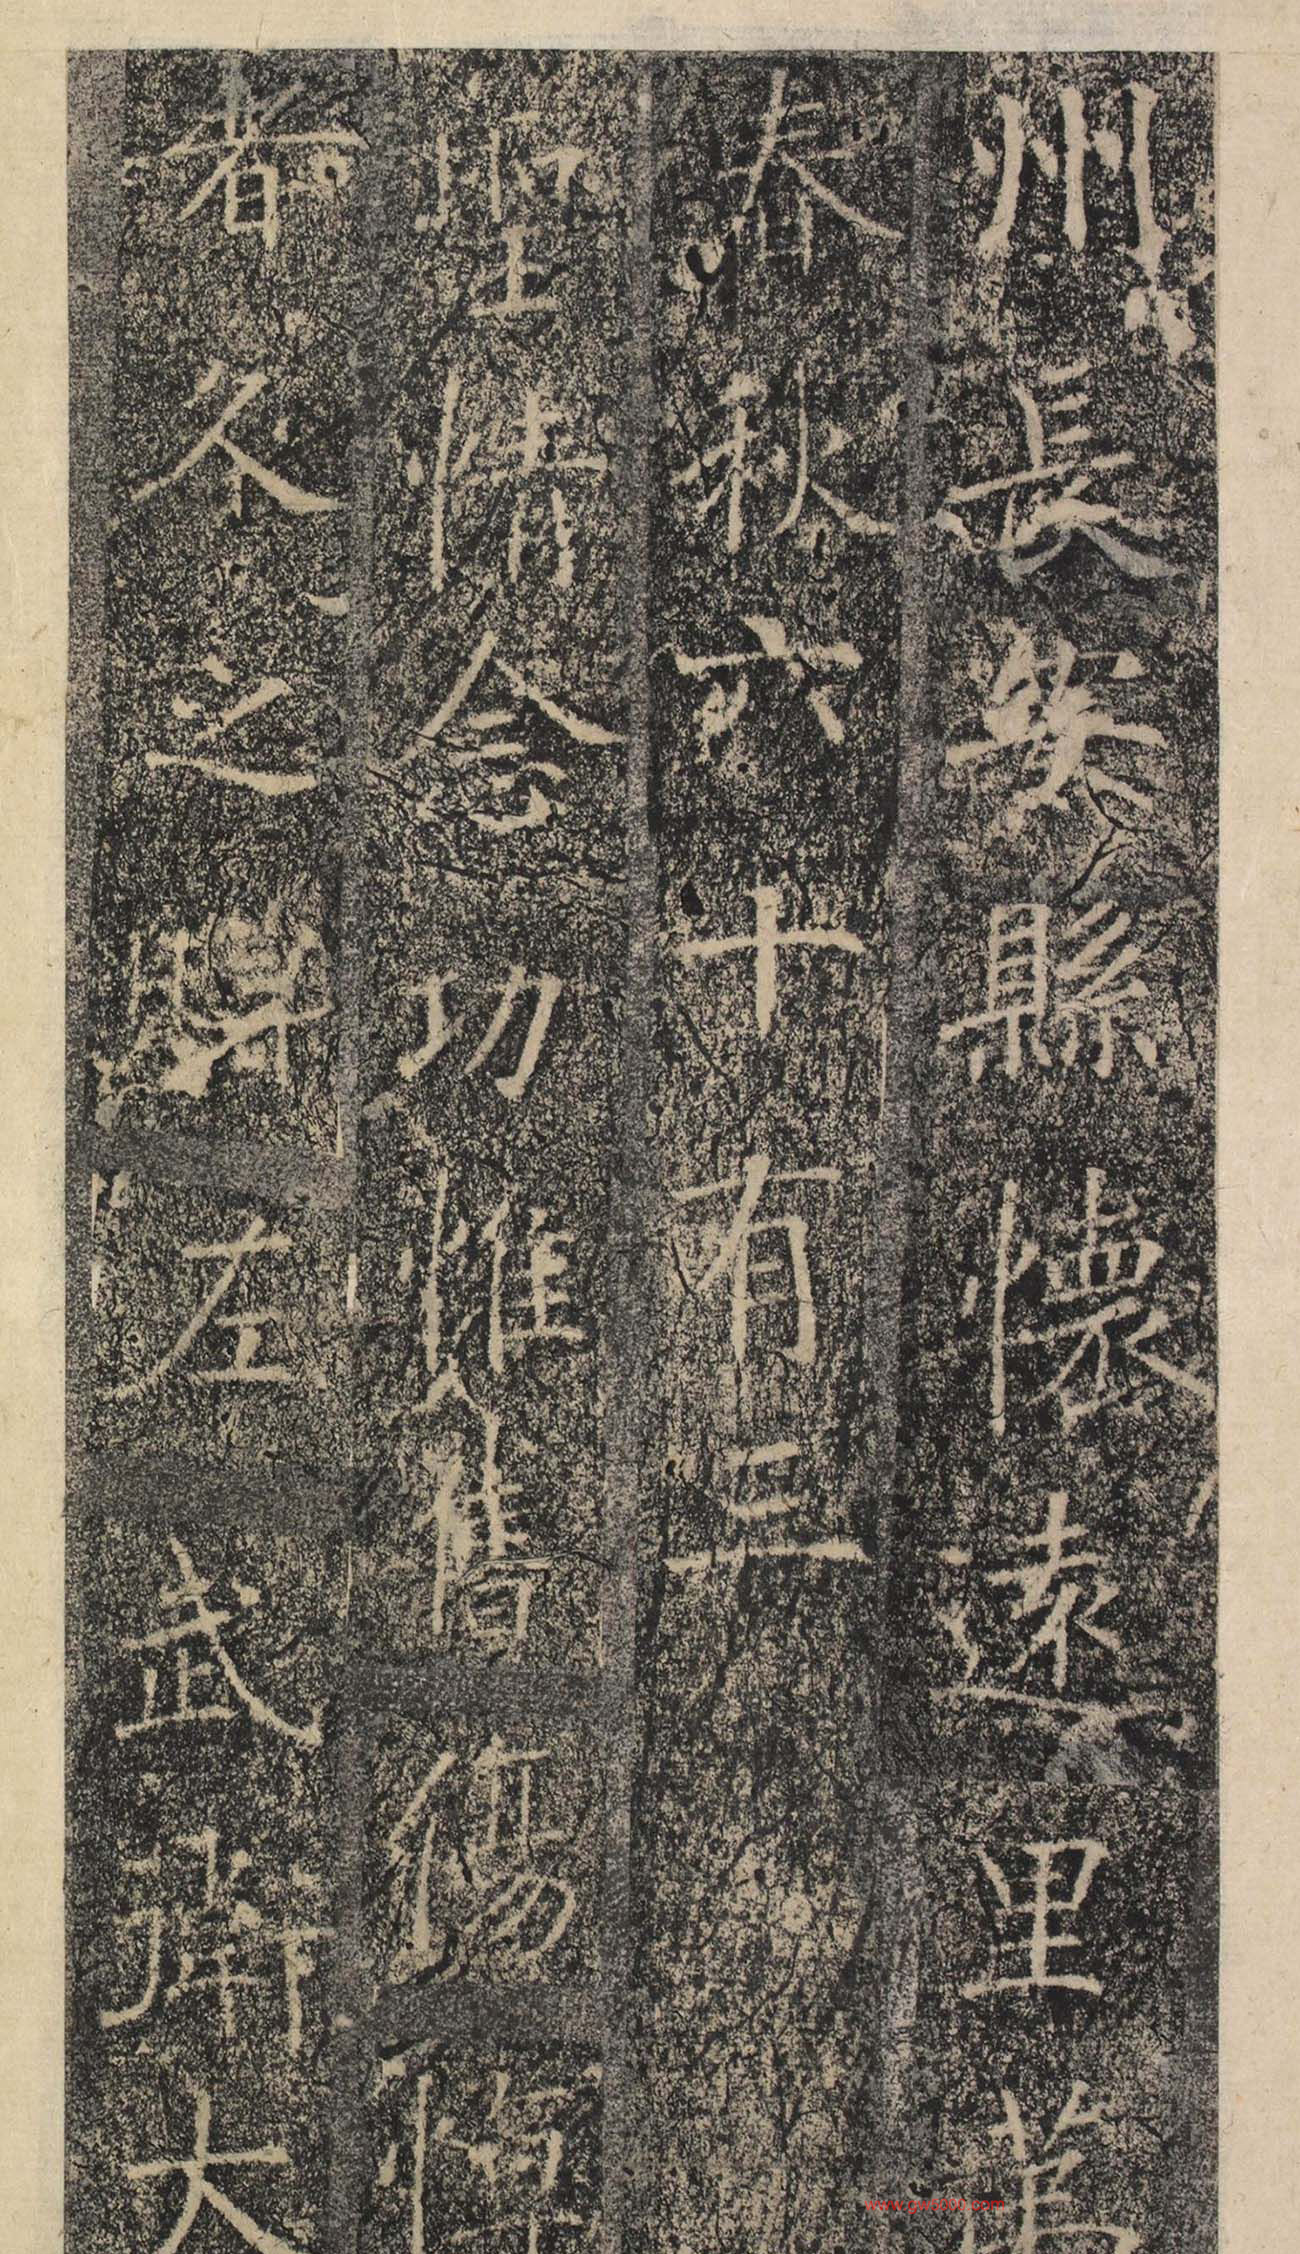 州長安縣懷遠里
春秋六十有三
聖情念功惟舊傷悼
者久之贈左武衛大